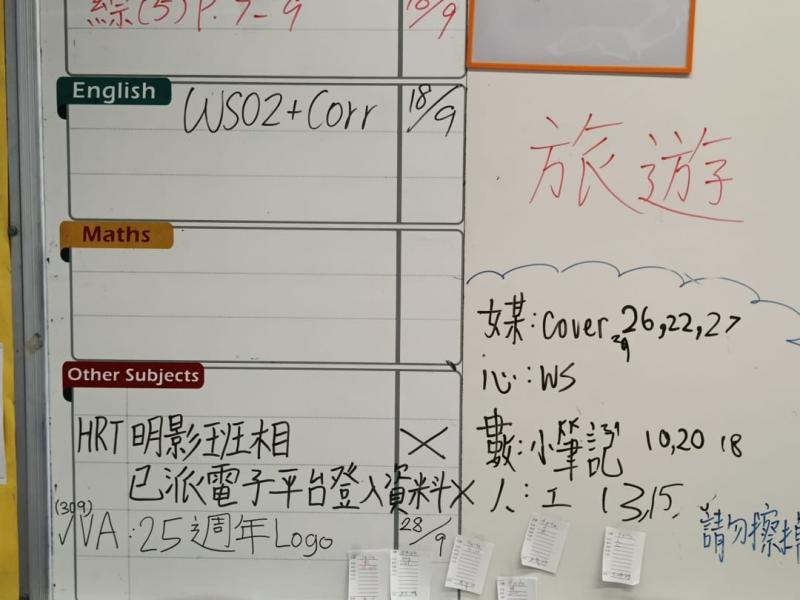 綜(5) P.7-9 18/9
English
WS02+Corr 18/9
Maths
Other Subjects
HRT 明影班相 ×
已派電子平台登入資料 ×
(309)
VA:25週年Logo 28/9
旅遊
媒:Cover 26,22,27
29
心:WS
數:小筆記 10,20 18
人:工 13,15
請勿擦掉